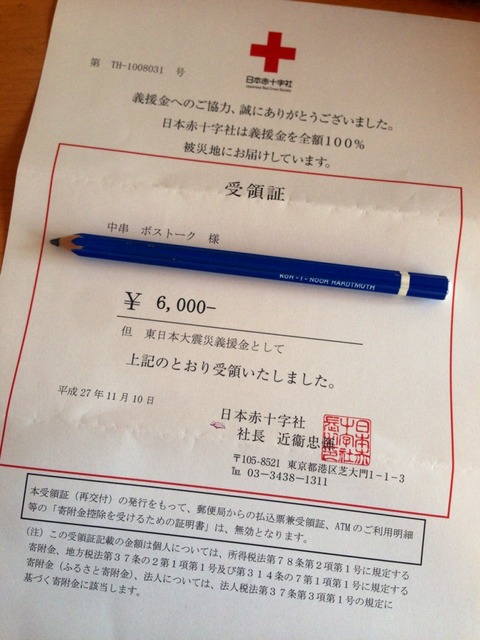 第 TH-1008031 号
日本赤十字社
Japanese Red Cross Society
義援金へのご協力、誠にありがとうございました。
日本赤十字社は義援金を全額100%
被災地にお届けしています。
受領証
中串 ボストーク 様
KOH-I-NOOR HARDTMUTH
¥ 6,000-
但 東日本大震災義援金として
上記のとおり受領いたしました。
平成27年11月10日
日本赤十字社
社長 近衞忠煇
日本赤十字社長之印
〒105-8521 東京都港区芝大門1-1-3
℡ 03-3438-1311
本受領証(再交付)の発行をもって、郵便局からの払込票兼受領証、ATMのご利用明細
等の「寄附金控除を受けるための証明書」は、無効となります。
(注)この受領証記載の金額は個人については、所得税法第78条第2項第1号に規定する
寄附金、地方税法第37条の2第1項第1号及び第314条の7第1項第1号に規定する
寄附金(ふるさと寄附金)、法人については、法人税法第37条第3項第1号の規定に
基づく寄附金に該当します。